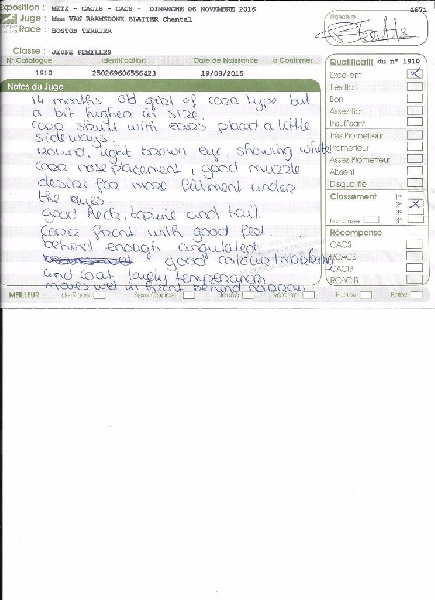 Exposition : METZ - CACIB - CACS - DIMANCHE 06 NOVEMBRE 2016
1671
Juge : Mme VAN RAAMSDONK BLAITER Chantal
Signature
Race : BOSTON TERRIER
Classe : JEUNE FEMELLES
N° Catalogue Identification Date de Naissance à Confirmer
1910 250269606556423 19/08/2015
Qualificatif du n° 1910
Notes du Juge
14 months old girl of type but
a bit higher in size.
skull with ears placed a little
sideways.
round, light brown eye, showing white
nose placement, good muzzle
desire for more filment under
the eyes.
good neck, topline and tail.
front with good feet
behind enough angulated
good colour/markings
and coat lovely temperament
moves well in front behind narrow
Excellent
Très Bon
Bon
Assez Bon
Insuffisant
Très Prometteur
Prometteur
Assez Prometteur
Absent
Disqualifié
Classement 1er
2e
3e
4e
Non Classé
Récompense
CACS
RCACS
CACIB
RCACIB
MEILLEUR de Race Sexe Opposé Jeune Vétéran Puppy Baby